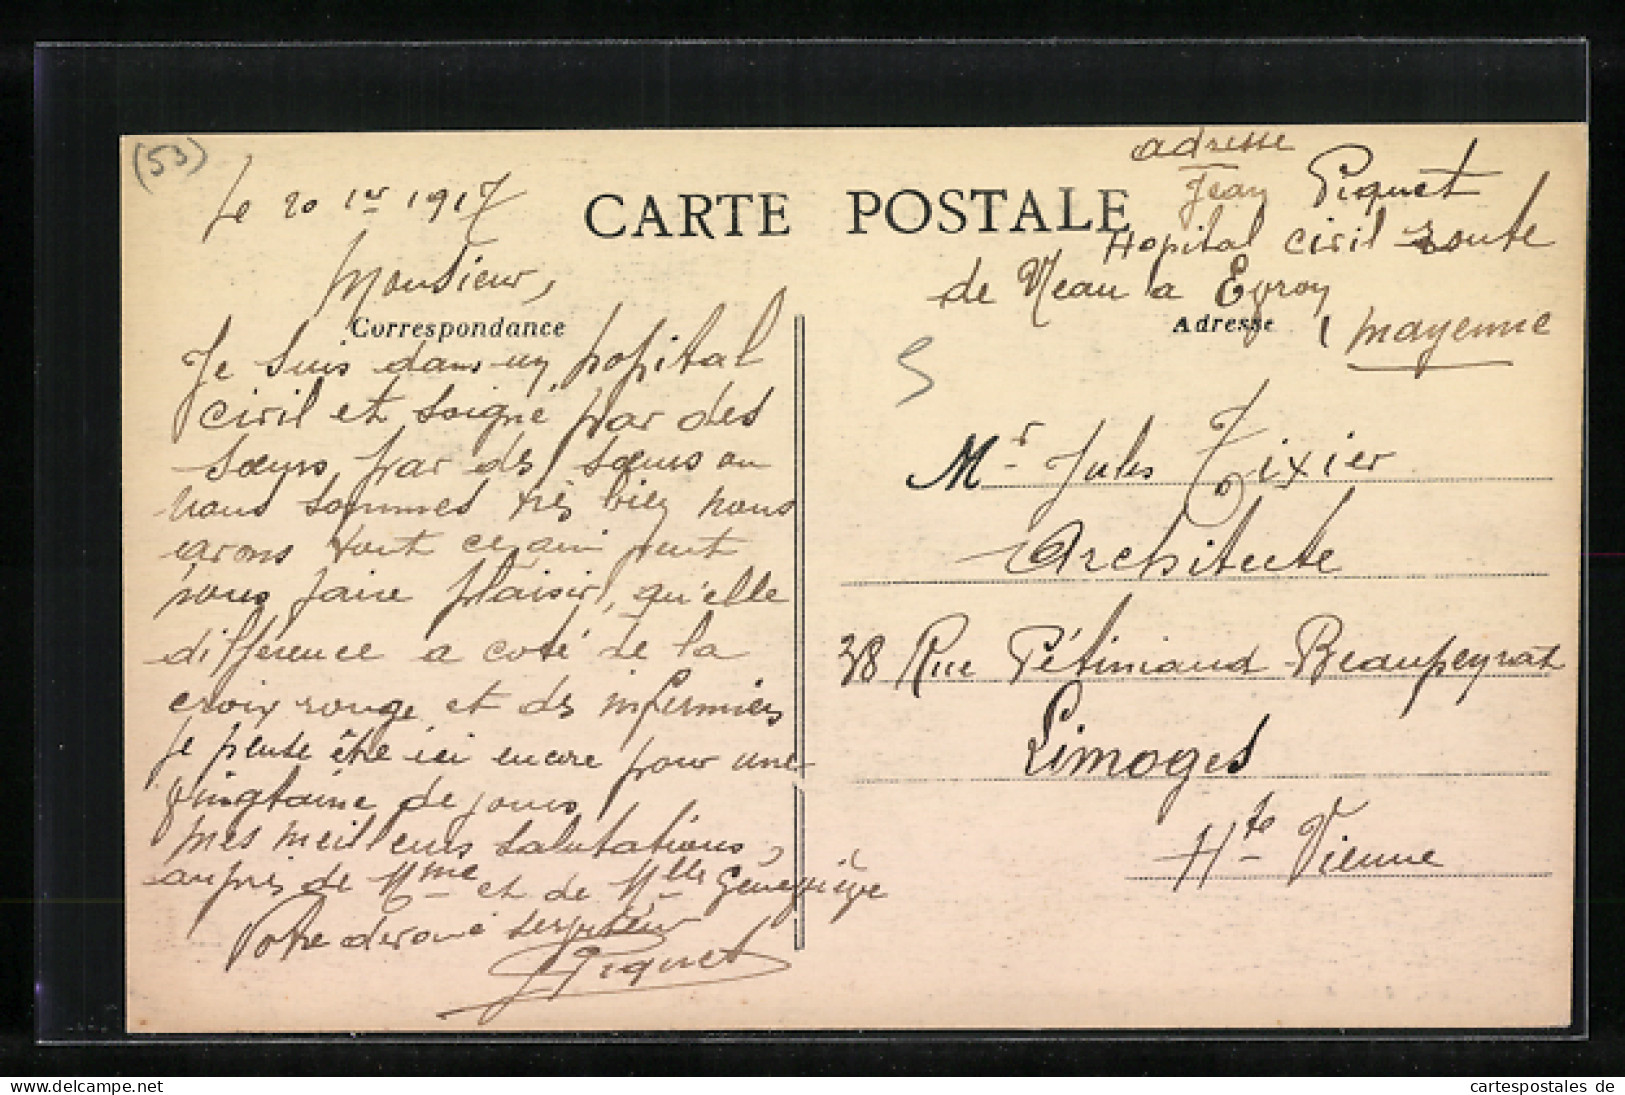 (53)
Le 20 1er 1917
CARTE POSTALE
Monsieur,
Correspondance
Je suis dans un hopital
civil et soigné par des
sœurs, par des sœurs ou
nous sommes très bien nous
avons tout ce qui peut
nous faire plaisir, qu'elle
différence a coté de la
croix rouge et des infermiers
Je pense être ici encore pour une
vingtaine de jours
Mes meilleurs salutations,
auprès de Mme et de Mlle Geneviève
Votre devoué serviteur
JPiquet
adresse
Jean Piquet
Hopital civil route
de Neau a Evron
Mayenne
Adresse
5
Mr Jules Tixier
Architecte
38 Rue Pétiniaud-Beaupeyrat
Limoges
Hte Vienne
www.ansichtskartenversand.com
cartespostales de